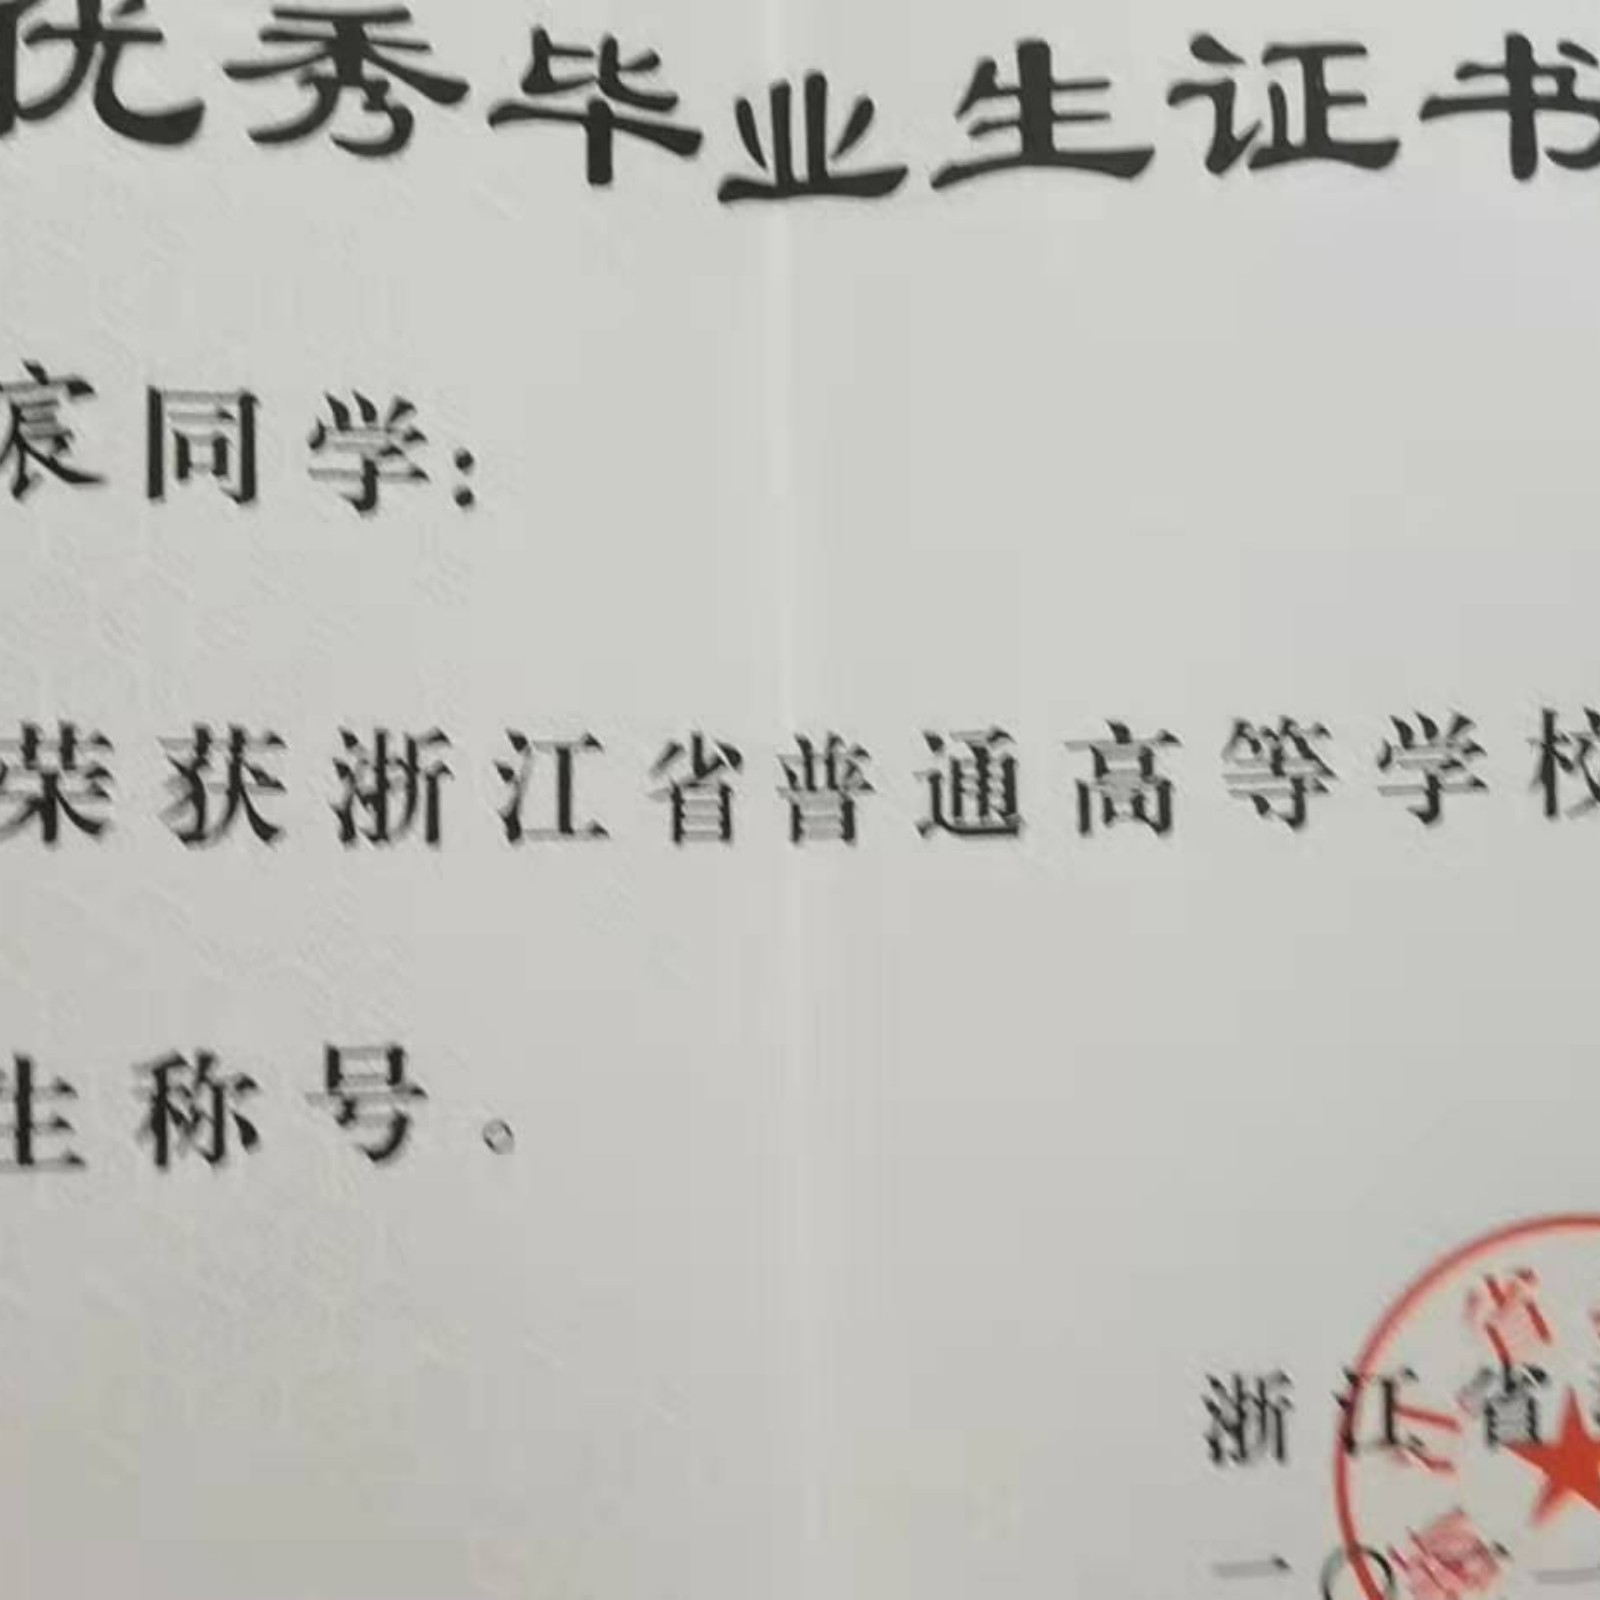 优秀毕业生证书
宸同学：
荣获浙江省普通高等学校
生称号。
浙江省